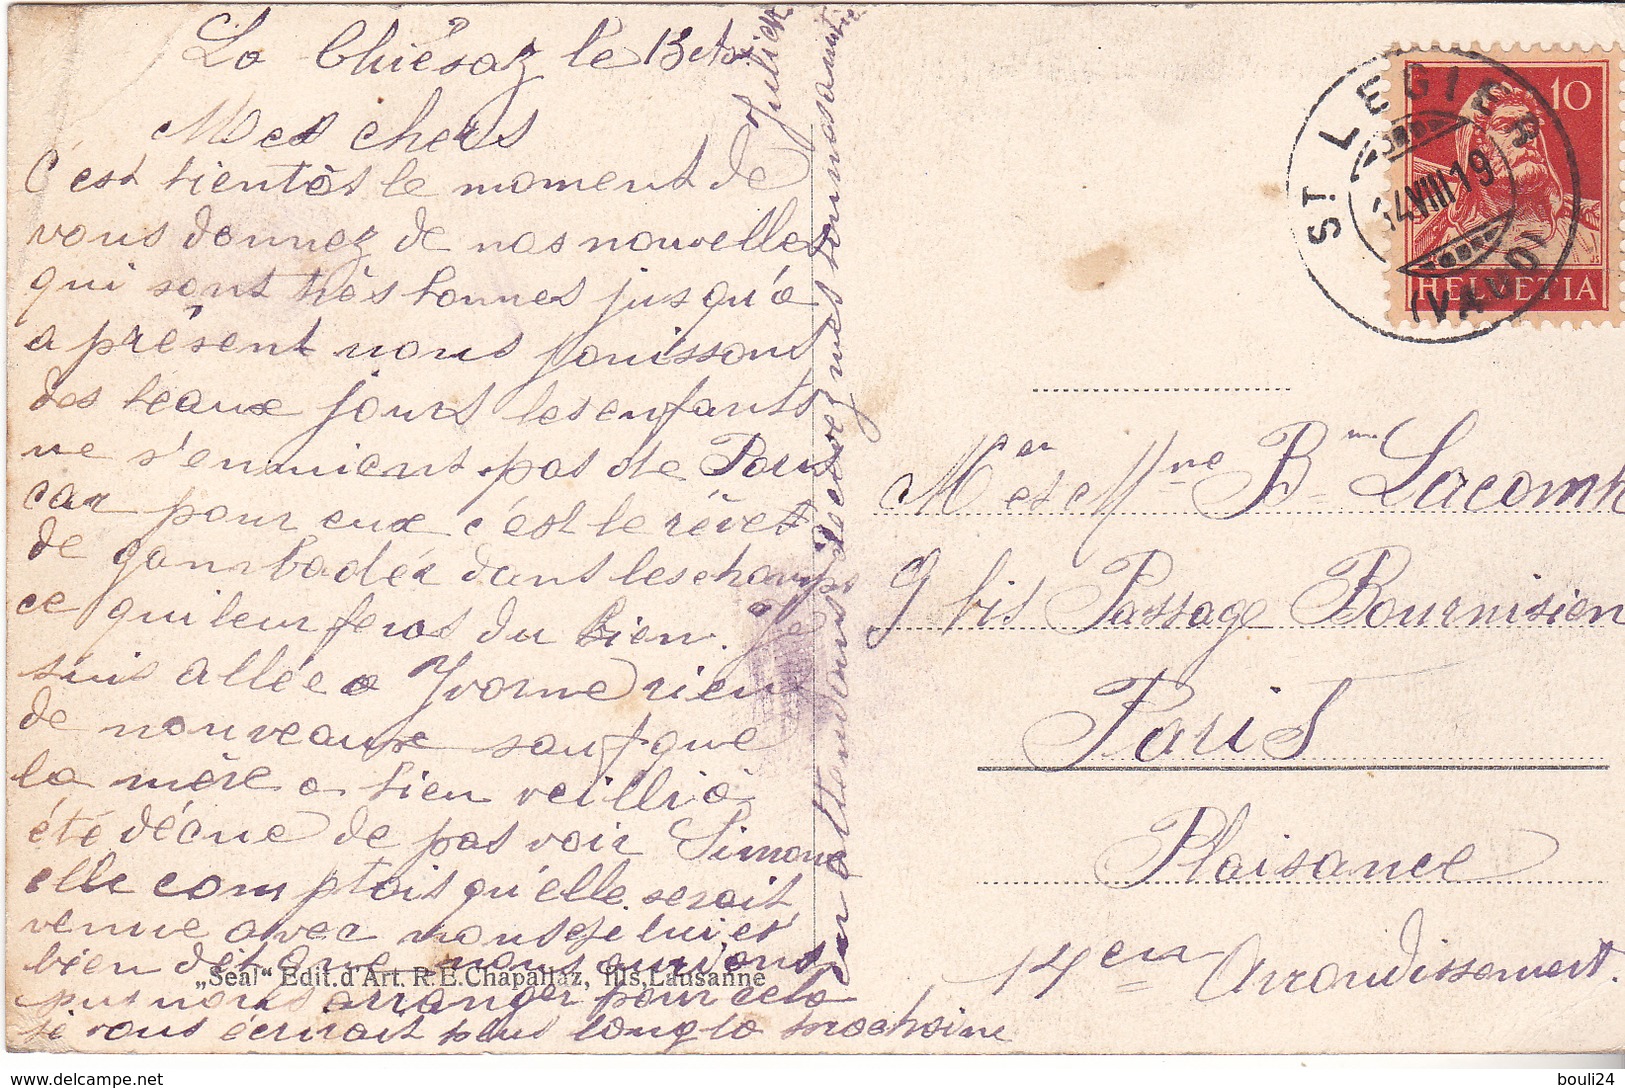 La Chiésaz le 13
Mes chers
C'est bientôt le moment de
vous donnez de nos nouvelles
qui sont très bonnes jusqu'a
a présent nous jouissons
des beaux jours les enfants
ne s'ennuient pas de Paris
car pour eux c'est le rêve
de gambader dans les champs
ce qui leur feras du bien. Je
suis allée a Yvorne rien
de nouveaux sauf que
la mère a bien veilli à
été déçue de pas voir Simone
elle comptais qu'elle serait
venue avec nous je lui ai
bien dit que nous aurions
pus nous arranger pour cela
je vous écrirait plus long la prochaine
en attendant recevez nos bonnes amitiés
Juliette
„Seal“ Edit.d'Art. R.E.Chapallaz, fils,Lausanne
ST LEGIER
VIII 19
(VAUD)
10
HELVETIA
Mer et Mme Bm Lacomb
9 bis Passage Bournisien
Paris
Plaisance
14em Arrondissement.
delcampe.net
bouli24